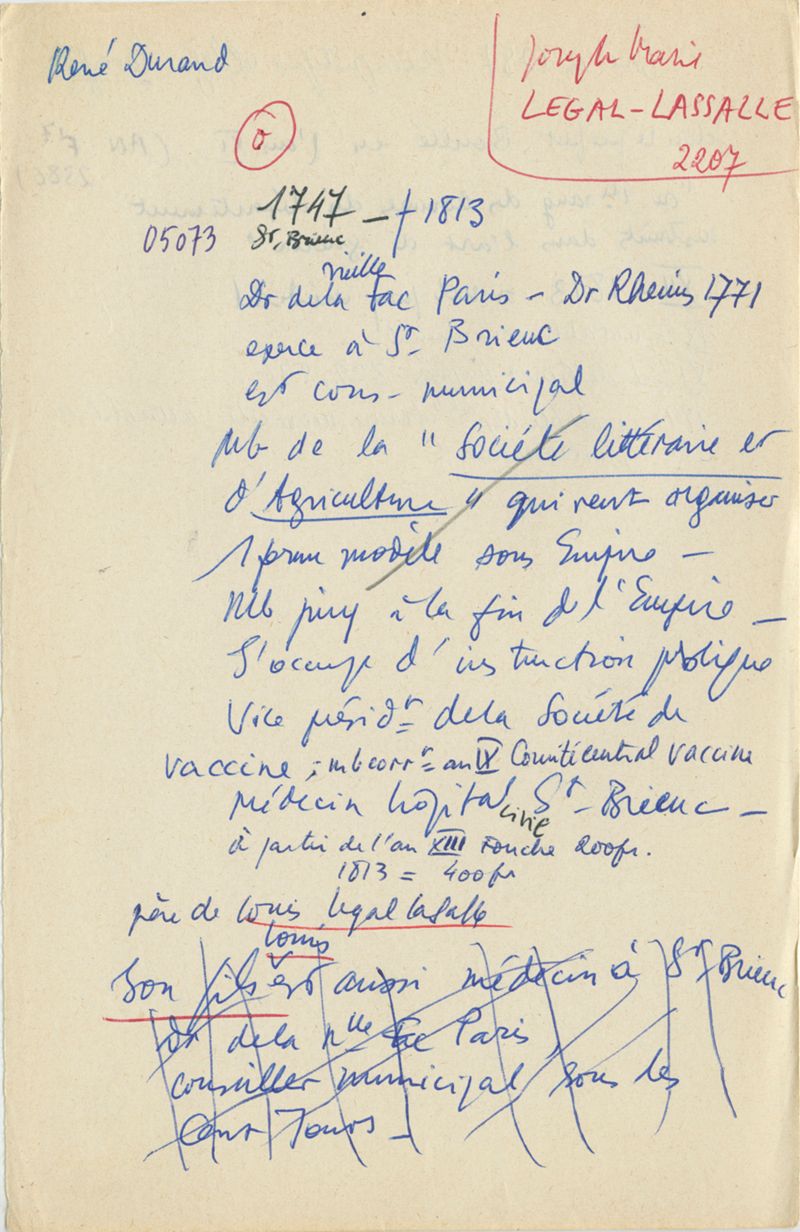 René Durand
Joseph Marie
LEGAL-LASSALLE
2207
ō
1747 — † 1813
05073
St. Brieuc
vieille
Dr de la fac Paris - Dr Rheims 1771
exerce à St Brieuc
est cons- municipal
Mb de la "Société littéraire et
d'Agriculture" qui veut organiser
1 ferme modèle sous Empire -
Mb jury à la fin de l'Empire -
S'occupe d'instruction publique
Vice présidt de la Société de
vaccine ; mb corrt an IX Comité central vaccine
Médecin hôpital St-Brieuc -
civil
à partir de l'an XIII touche 200fr.
1813 = 400fr
père de Louis Legal Lasalle
Louis
Son fils est aussi médecin à St Brieuc
Dr de la nlle fac Paris
conseiller municipal sous les
Cent Jours -